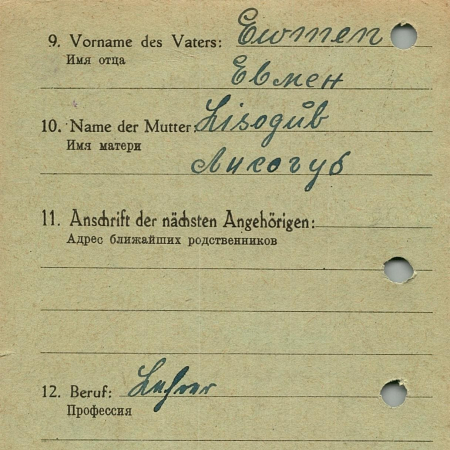 9. Vorname des Vaters: Ewmen
Имя отца
Евмен
10. Name der Mutter: Lisogub
Имя матери
Лисогуб
11. Anschrift der nächsten Angehörigen:
Адрес ближайших родственников
12. Beruf: Lehrer
Профессия